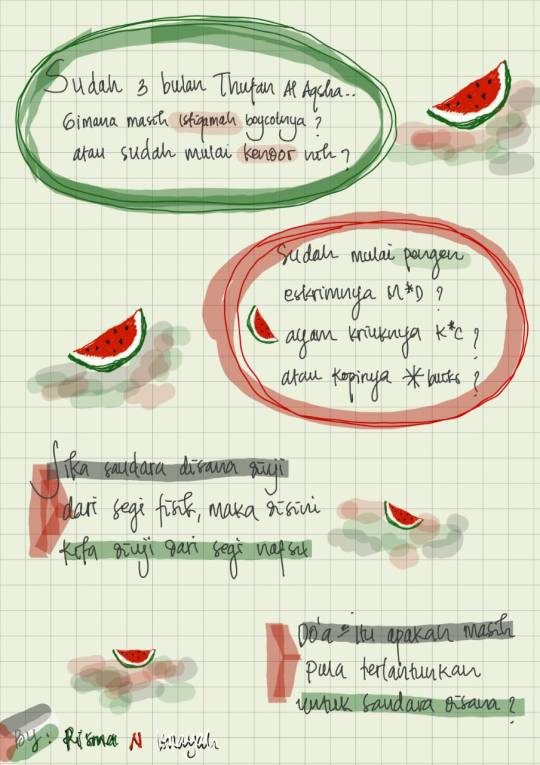 Sudah 3 bulan Thufan Al Aqsha..
Gimana masih istiqmah boycotnya ?
atau sudah mulai kendor nih ?
Sudah mulai pengen
eskrimnya M*D ?
ayam kriuknya K*C ?
atau kopinya *bucks ?
Jika saudara disana diuji
dari segi fisik, maka disini
kita diuji dari segi nafsu
Do'a-itu apakah masih
pula terlantunkan
untuk saudara disana ?
by: Risma N Inayah